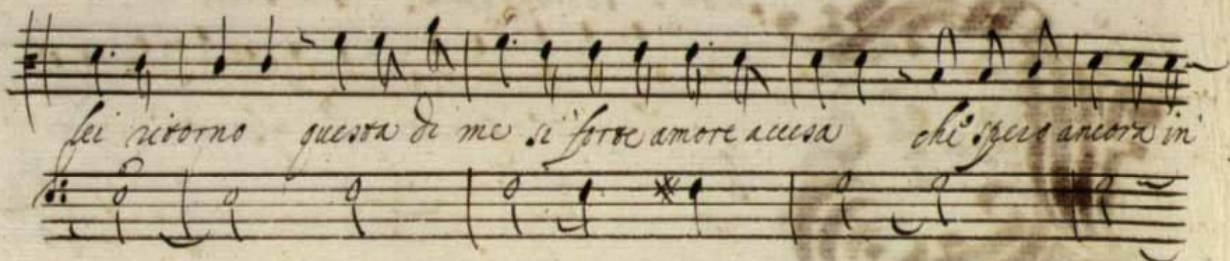 lei ritorno questa di me si forte amore accesa che spero ancora in